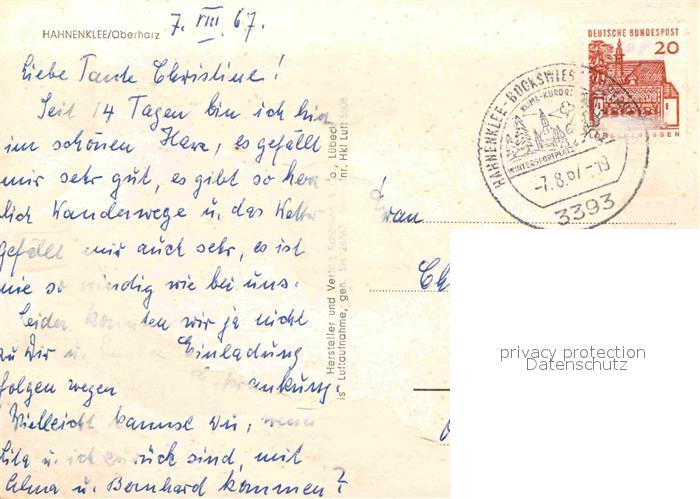 HAHNENKLEE/Oberharz
7. VIII. 67.
Liebe Tante Christine!
Seit 14 Tagen bin ich hier
im schönen Harz, es gefällt
mir sehr gut, es gibt so herr
lich Wanderwege u. das Wetter
gefällt mir auch sehr, es ist
nie so windig wie bei uns.
Leider konnten wir ja nicht
zu Dir u. Einladung
folgen wegen ankung.
Vielleicht kannst Du, wenn
u. ich zurück sind, mit
u. Bernhard kommen?
Hersteller und Verlag Lübeck
Luftaufnahme, gen. SH
DEUTSCHE BUNDESPOST
20
HAHNENKLEE-BOCKSWIESE
KLIMA-KURORT
WINTERSPORTPLATZ
-7.8.67-19
3393
Frau
privacy protection
Datenschutz